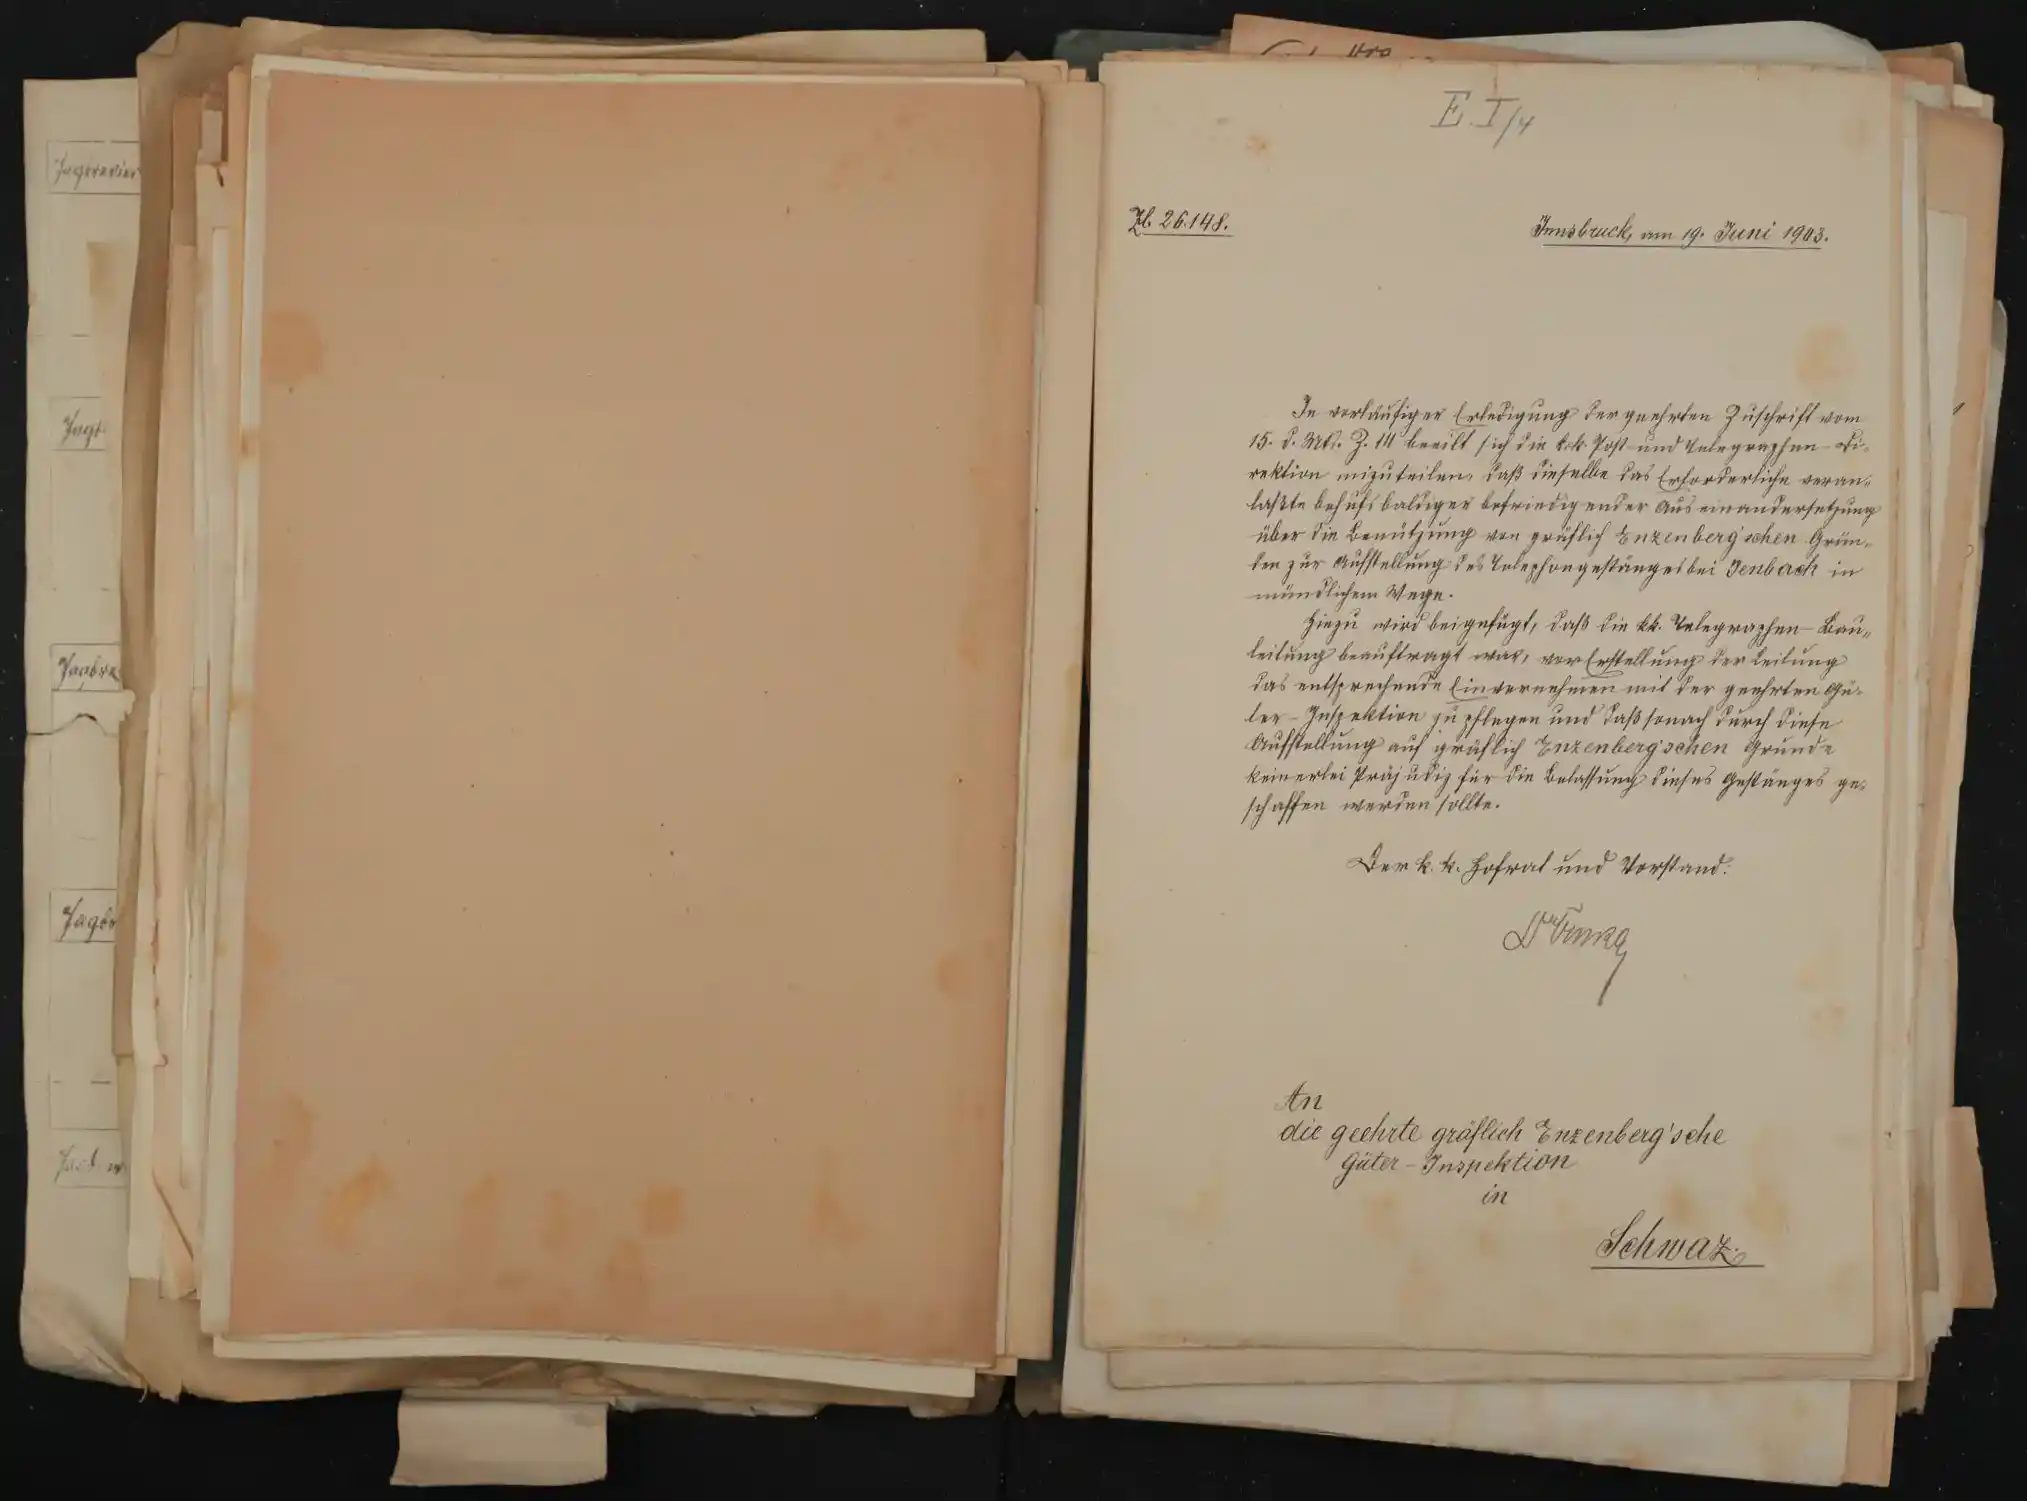 Jagdrevier
Jagd
E. I/4
Zl. 26.148.
Innsbruck, am 19. Juni 1903.
In vorläufiger Erledigung der geehrten Zuschrift vom
15. d. Mts. Z. 111 beeilt sich die k.k. Post- und Telegraphen-Di-
rektion mizuteilen, daß dieselbe das Erforderliche veran-
laßte behufs baldiger befriedigender Auseinandersetzung
über die Benützung von gräflich Enzenberg'schen Grün-
den zur Aufstellung des Telephongestänges bei Jenbach in
mündlichem Wege.
Hiezu wird beigefügt, daß die k.k. Telegraphen-Bau-
leitung beauftragt war, vor Erstellung der Leitung
das entsprechende Einvernehmen mit der geehrten Gü-
ter-Inspektion zu pflegen und daß sonach durch diese
Aufstellung auf gräflich Enzenberg'schen Grunde
keinerlei Präjudiz für die Belassung dieses Gestänges ge-
schaffen werden sollte.
Der k. k. Hofrat und Vorstand:
Dr
An
die geehrte gräflich Enzenberg'sche
Güter-Inspektion
in
Schwaz.